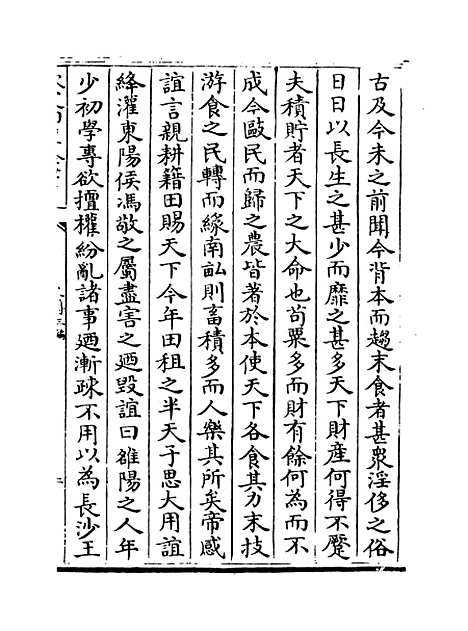 古及今未之前聞今背本而趨末食者甚衆淫侈之俗
日日以長生之甚少而靡之甚多天下財產何得不蹷
夫積貯者天下之大命也茍粟多而財有餘何為而不
成今敺民而歸之農皆著於本使天下各食其力末技
游食之民轉而緣南畝則畜積多而人樂其所矣帝感
誼言親耕籍田賜天下今年田租之半天子思大用誼
絳灌東陽侯馮敬之屬盡害之廼毀誼曰雒陽之人年
少初學專欲擅權紛亂諸事廼漸疎不用以為長沙王